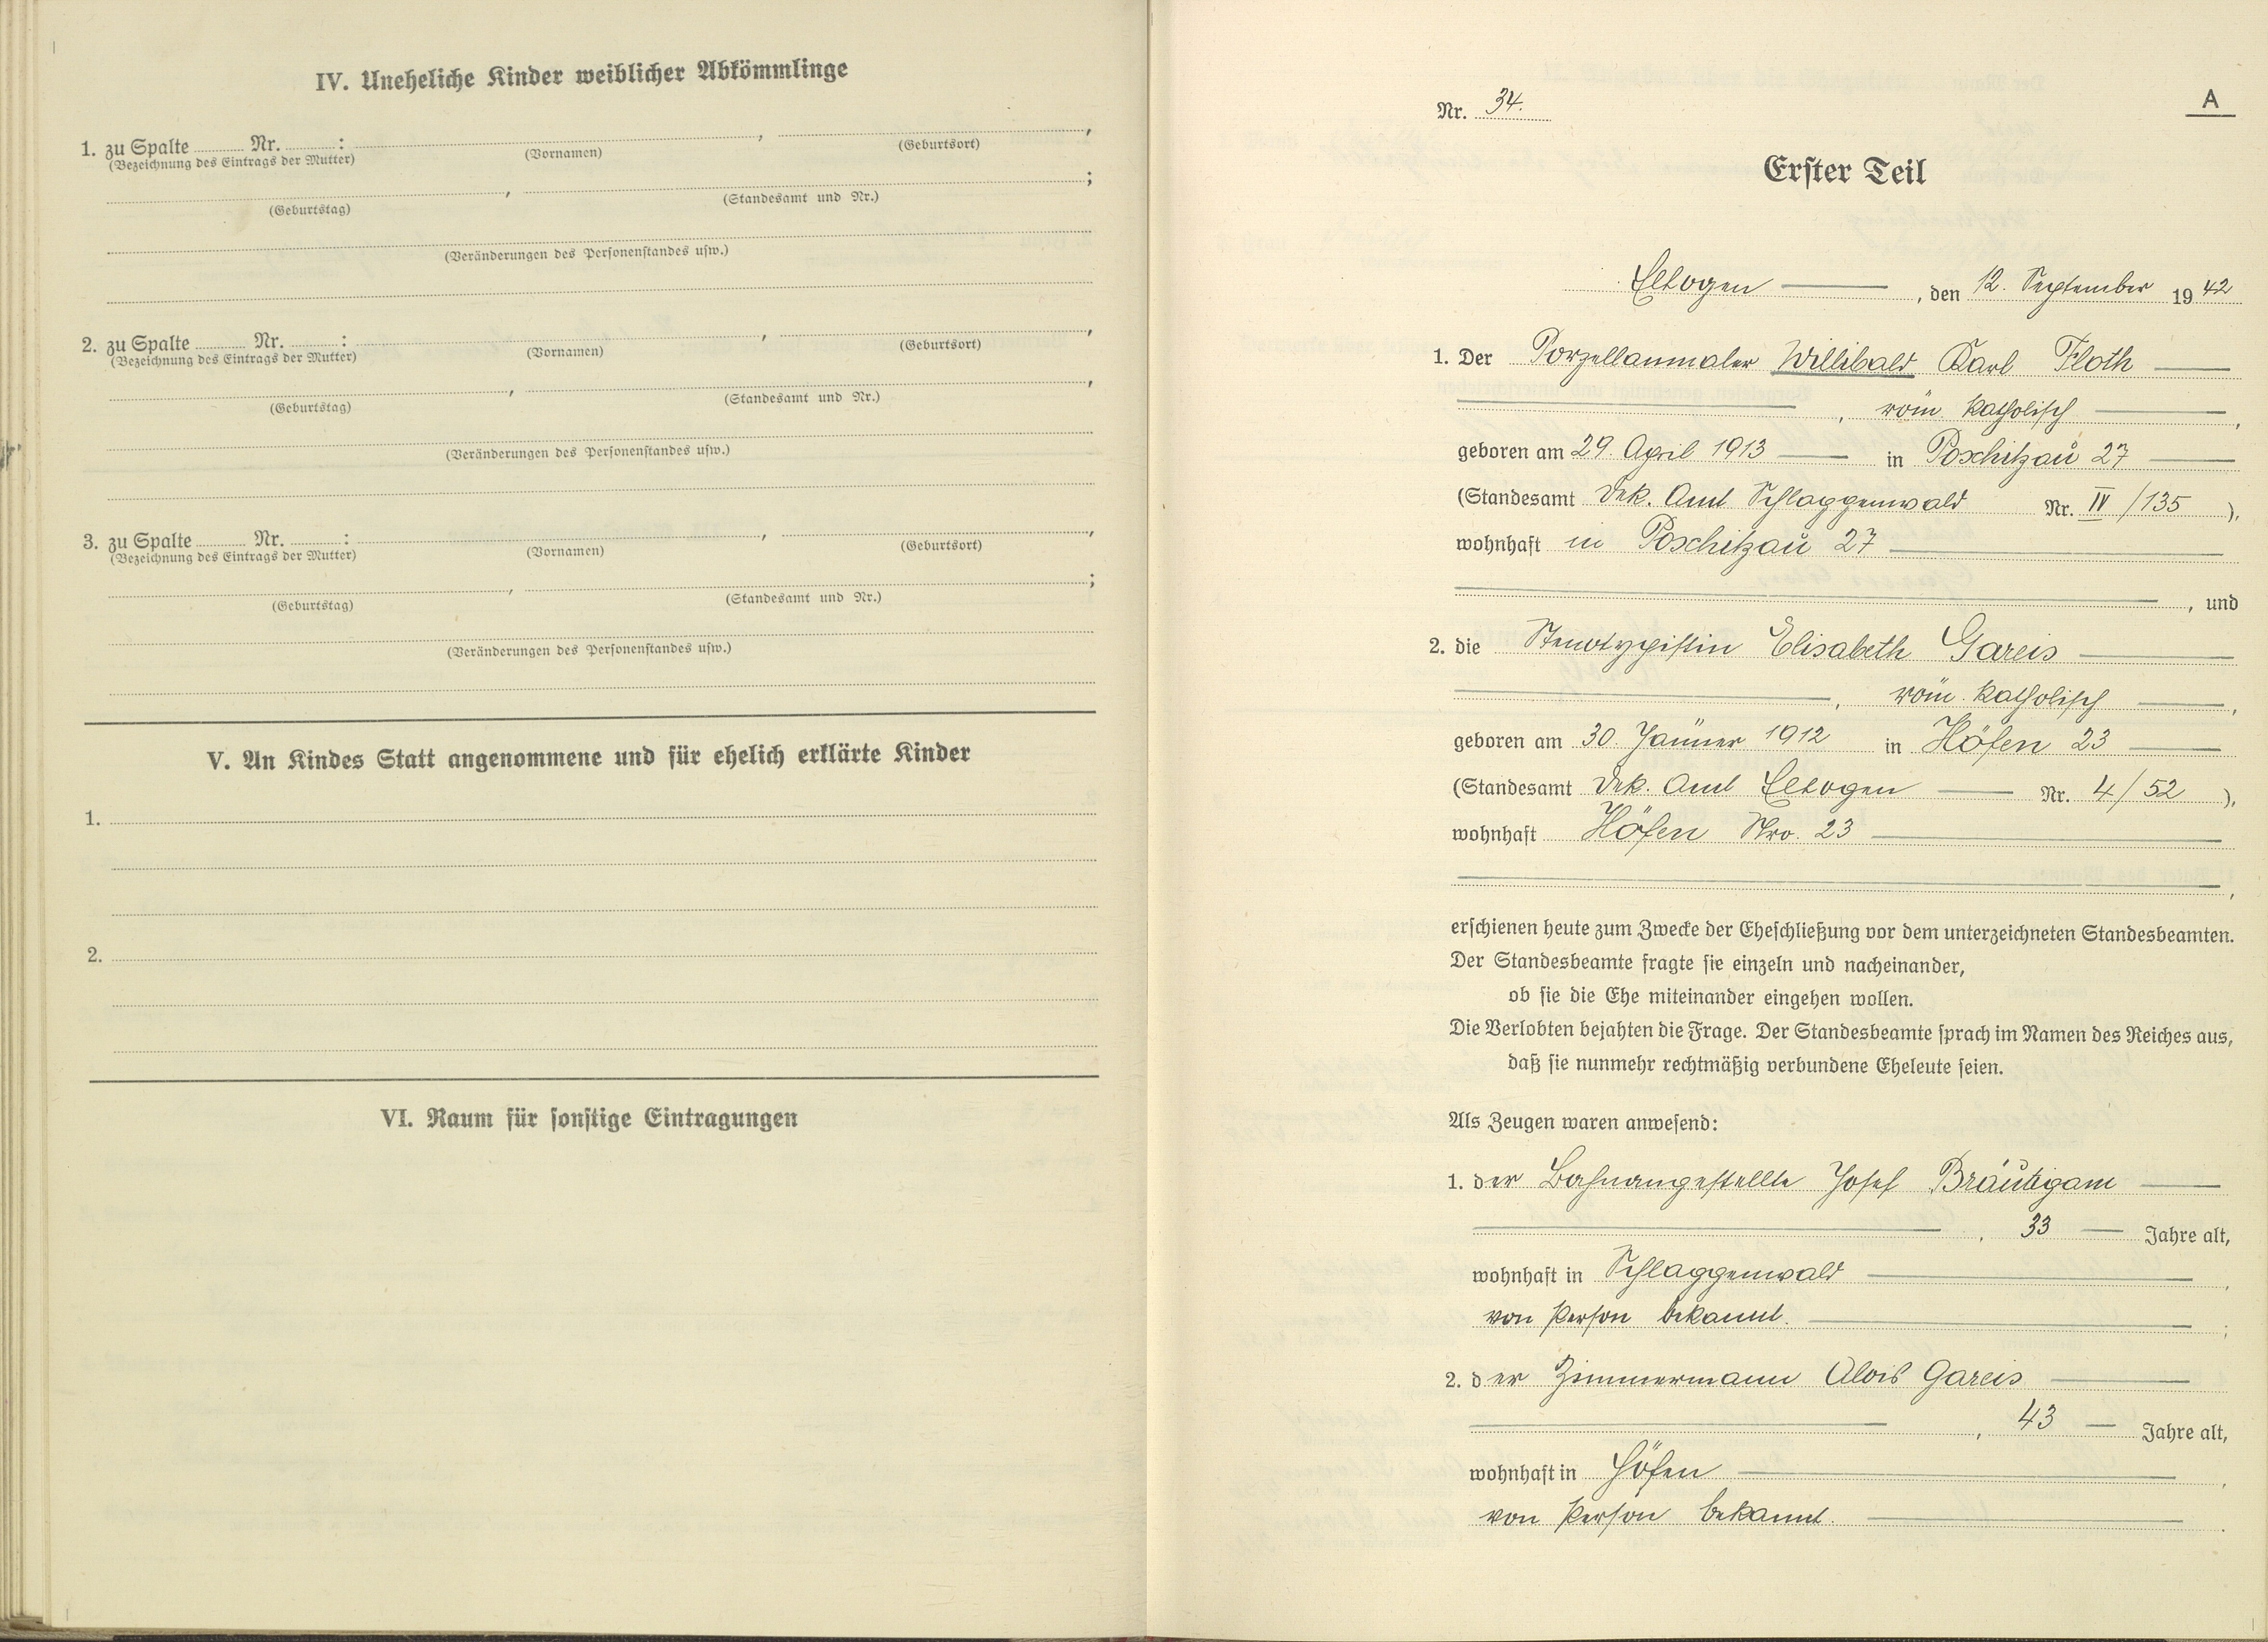 IV. Uneheliche Kinder weiblicher Abkömmlinge
1. zu Spalte ........ Nr. ........ : ........, ........,
(Bezeichnung des Eintrags der Mutter) (Vornamen) (Geburtsort)
........, ........;
(Geburtstag) (Standesamt und Nr.)
(Veränderungen des Personenstandes usw.)
2. zu Spalte ........ Nr. ........ : ........, ........,
(Bezeichnung des Eintrags der Mutter) (Vornamen) (Geburtsort)
........, ........,
(Geburtstag) (Standesamt und Nr.)
(Veränderungen des Personenstandes usw.)
3. zu Spalte ........ Nr. ........ : ........, ........,
(Bezeichnung des Eintrags der Mutter) (Vornamen) (Geburtsort)
........, ........;
(Geburtstag) (Standesamt und Nr.)
(Veränderungen des Personenstandes usw.)
V. An Kindes Statt angenommene und für ehelich erklärte Kinder
1.
2.
VI. Raum für sonstige Eintragungen
A
Nr. 34.
Erster Teil
Elbogen, den 12. September 1942
1. Der Porzellanmaler Willibald Karl Floth
, röm. katholisch,
geboren am 29. April 1913 in Poschitzau 27
(Standesamt Dek. Amt Schlaggenwald Nr. IV/135),
wohnhaft in Poschitzau 27
, und
2. die Stenotypistin Elisabeth Gareis
, röm. katholisch,
geboren am 30. Jänner 1912 in Höfen 23
(Standesamt Dek. Amt Elbogen Nr. 4/52),
wohnhaft Höfen Nro. 23
,
erschienen heute zum Zwecke der Eheschließung vor dem unterzeichneten Standesbeamten.
Der Standesbeamte fragte sie einzeln und nacheinander,
ob sie die Ehe miteinander eingehen wollen.
Die Verlobten bejahten die Frage. Der Standesbeamte sprach im Namen des Reiches aus,
daß sie nunmehr rechtmäßig verbundene Eheleute seien.
Als Zeugen waren anwesend:
1. der Bahnangestellte Josef Bräutigam
, 33 Jahre alt,
wohnhaft in Schlaggenwald,
von Person bekannt.;
2. der Zimmermann Alois Gareis
, 43 Jahre alt,
wohnhaft in Höfen,
von Person bekannt.